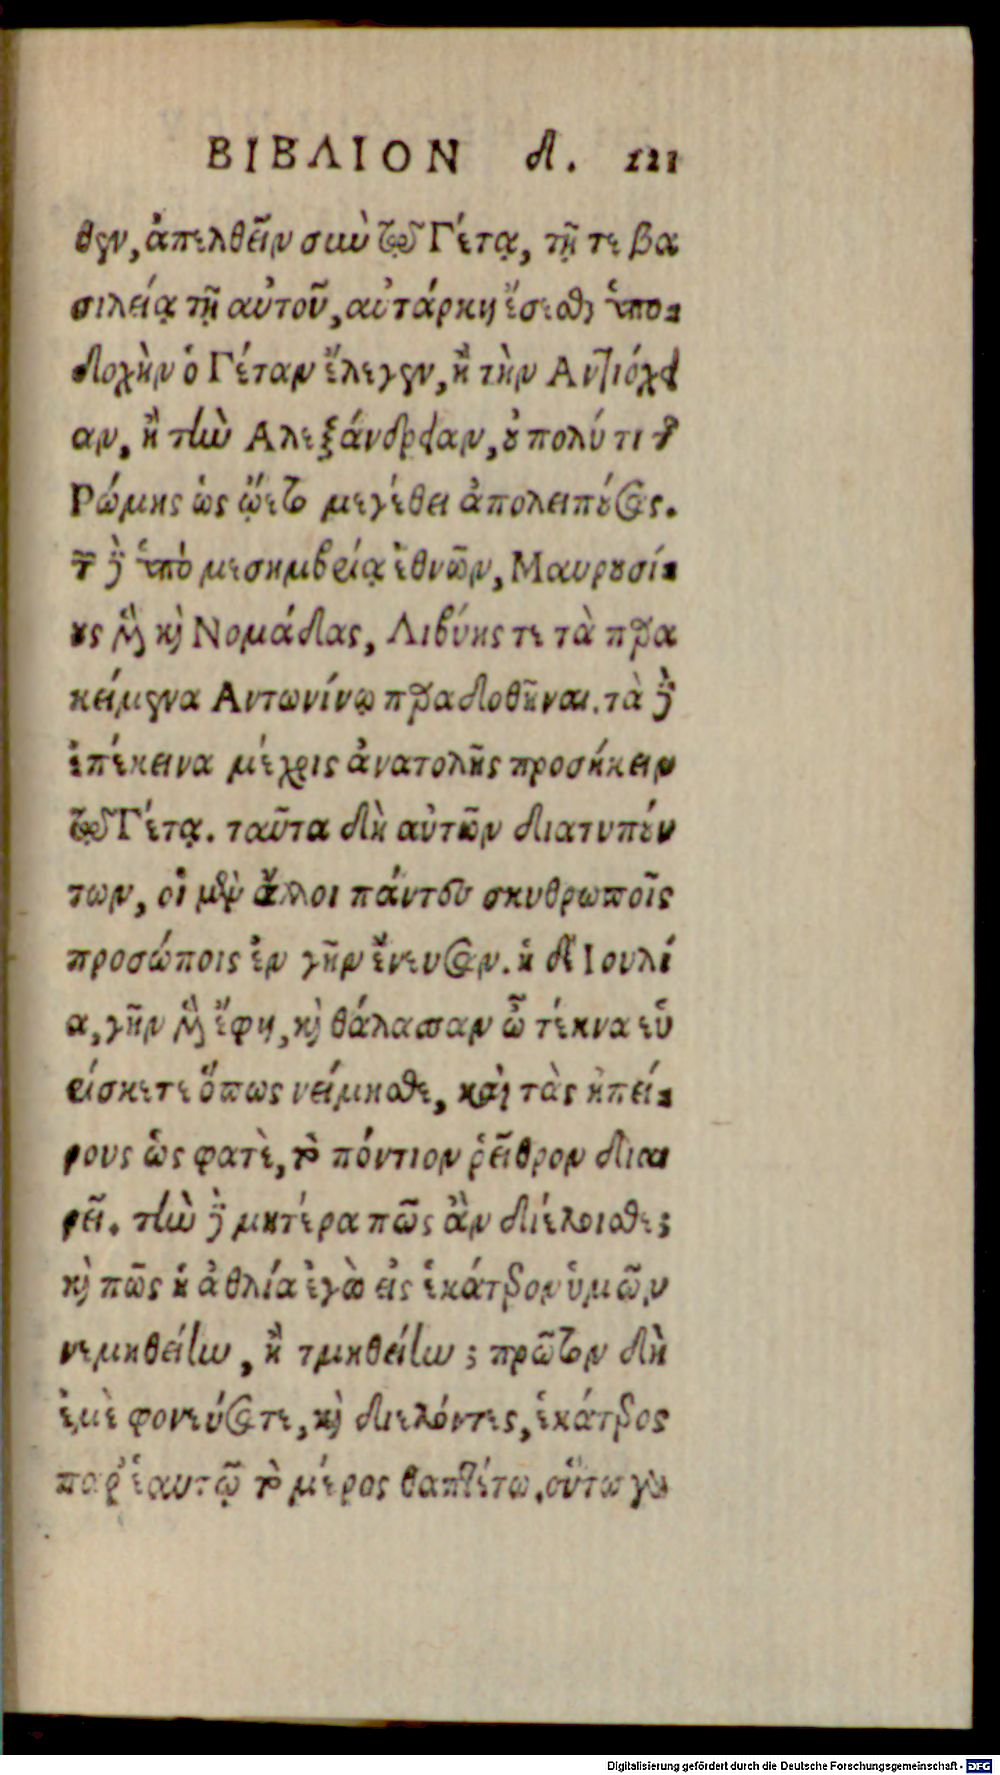 ΒΙΒΛΙΟΝ δ. 121
θεν, ἀπελθεῖν σὺν τῷ Γέτᾳ, τῇ τε βα
σιλείᾳ τῇ αὐτοῦ, αὐτάρκη ἔσεσθαι ὑπο-
δοχὴν ὁ Γέταν ἔλεγεν, ἢ τὴν Αντιόχει
αν, ἢ τὴν Αλεξάνδρειαν, οὐ πολύ τι τῆς
Ρώμης ὡς ᾤετο μεγέθει ἀπολειπούσας.
τῶν δὲ ὑπὸ μεσημβρίᾳ ἐθνῶν, Μαυρουσί-
ους μὲν καὶ Νομάδας, Λιβύης τε τὰ παρα
κείμενα Αντωνίνῳ παραδοθῆναι. τὰ δὲ
ἐπέκεινα μέχρις ἀνατολῆς προσήκειν
τῷ Γέτᾳ. ταῦτα δὴ αὐτῶν διατυπούν
των, οἱ μὲν ἄλλοι πάντες σκυθρωποῖς
προσώποις ἐν γῆν ἔνευσαν. ἡ δὲ Ιουλί
α, γῆν μὲν ἔφη, καὶ θάλασσαν ὦ τέκνα εὑ
ρίσκετε ὅπως νείμησθε, καὶ τὰς ἠπεί-
ρους ὡς φατὲ, τὸ πόντιον ῥεῖθρον διαι
ρεῖ. τὴν δὲ μητέρα πῶς ἂν διέλοισθε;
καὶ πῶς ἡ ἀθλία ἐγὼ εἰς ἑκάτερον ὑμῶν
νεμηθείην, ἢ τμηθείην; πρῶτον δὴ
ἐμὲ φονεύσατε, καὶ διελόντες, ἑκάτερος
παρ' ἑαυτῷ τὸ μέρος θαπτέτω. οὕτω γὰρ
Digitalisierung gefördert durch die Deutsche Forschungsgemeinschaft - DFG